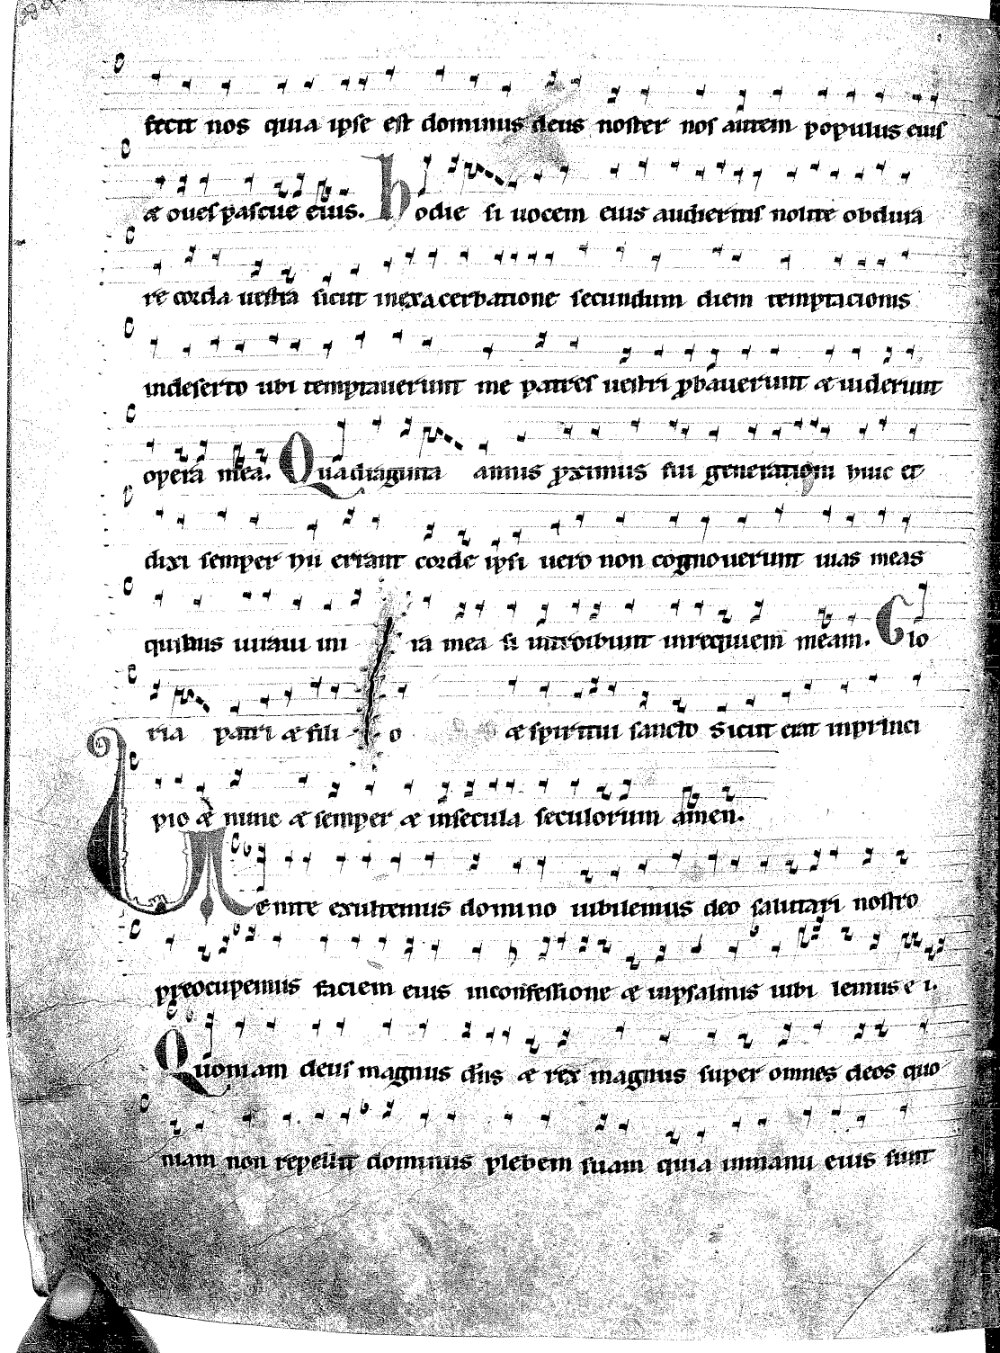 fecit nos quia ipse est dominus deus noster nos autem populus eius
& oues pascue eius. Hodie si uocem eius audieritis nolite obdura
re corda uestra sicut inexacerbatione secundum diem temptacionis
indeserto ubi temptauerunt me patres uestri pbauerunt & uiderunt
opera mea. Quadraginta annis pximus fui generationi huic et
dixi semper hii errant corde ipsi uero non cognouerunt uias meas
quibus iuraui in ira mea si introibunt inrequiem meam. Glo
ria patri & fili o & spiritui sancto Sicut erat inprinci
pio & nunc & semper & insecula seculorum amen.
Uenite exultemus domino iubilemus deo salutari nostro
preocupemus faciem eius inconfessione & inpsalmis iubilemus ei.
Quoniam deus magnus dns & rex magnus super omnes deos quo
niam non repellit dominus plebem suam quia inmanu eius sunt